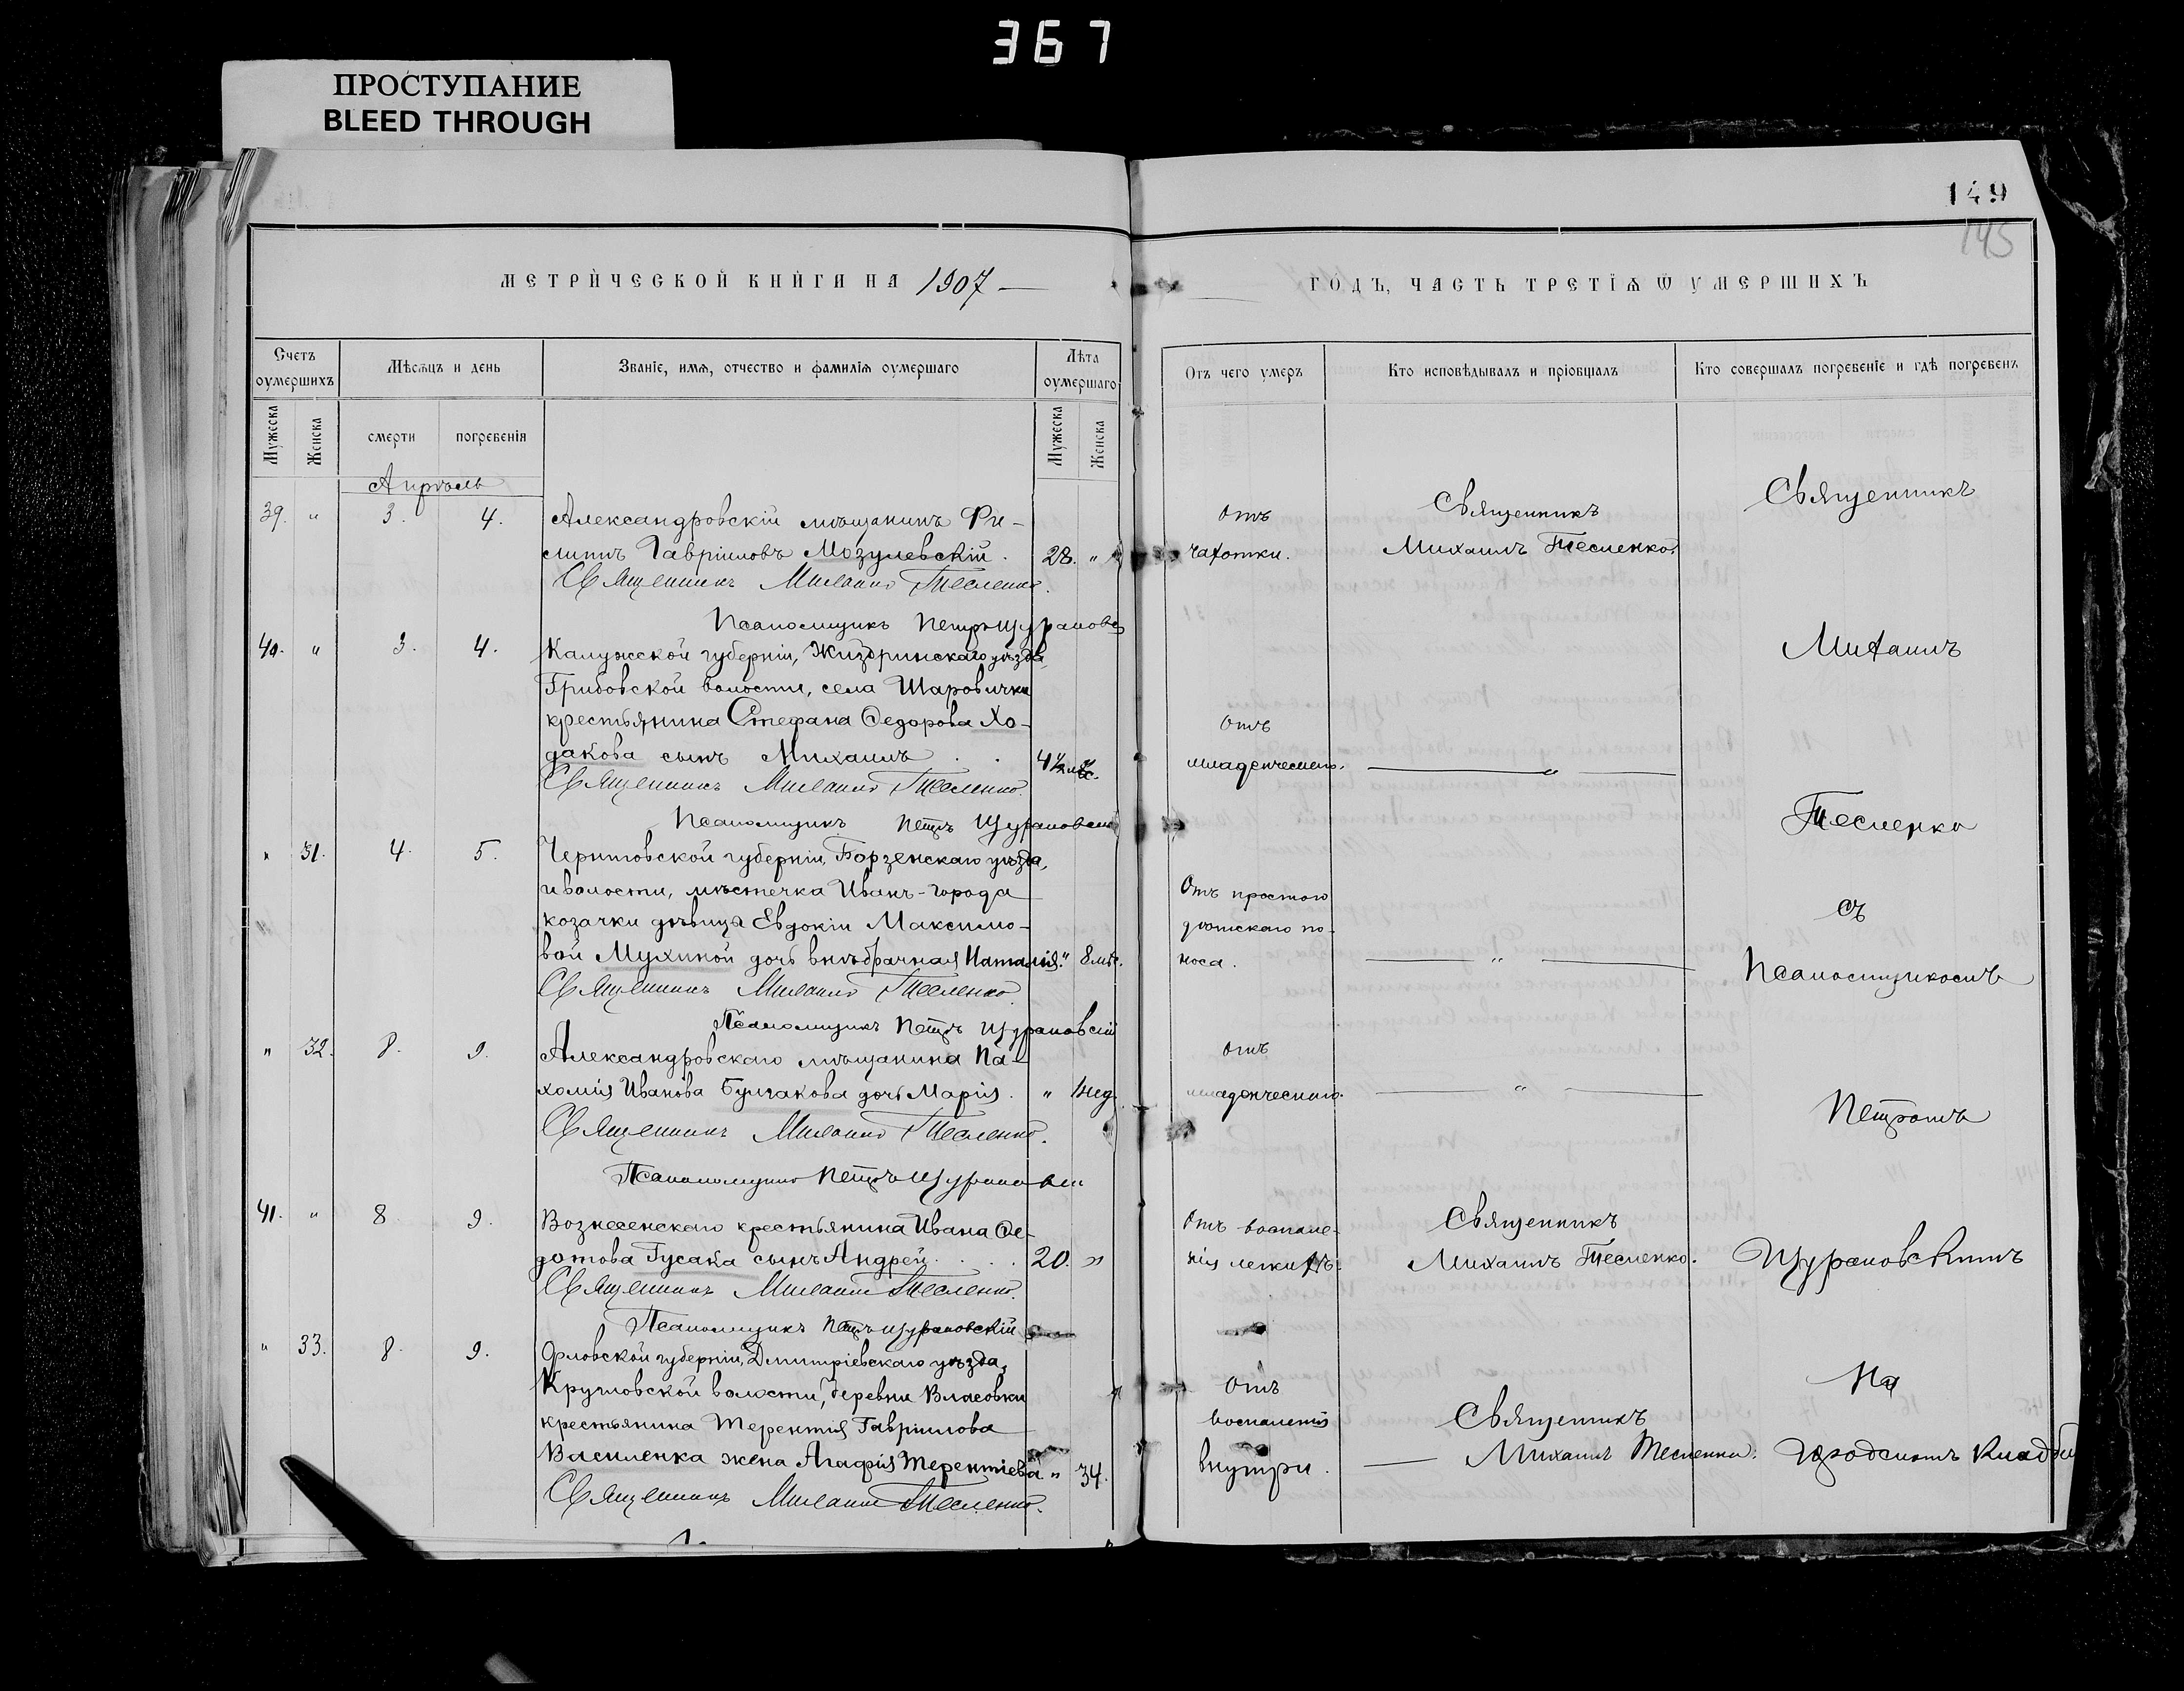 367
ПРОСТУПАНИЕ
BLEED THROUGH
149
145
МЕТРИЧЕСКОЙ КНИГИ НА 1907
ГОДЪ, ЧАСТЬ ТРЕТІѦ Ѿ УМЕРШИХЪ
Счетъ оумершихъ
Мѣсѧцъ и день
Званіе, имѧ, отчество и фамиліѧ оумершаго
Лѣта оумершаго
Отъ чего умеръ
Кто исповѣдывалъ и пріобщалъ
Кто совершалъ погребеніе и гдѣ погребенъ
Мужеска
Женска
смерти
погребенія
Мужеска
Женска
Апрѣль
39. " 3. 4.
Александровскій мѣщанинъ Фи-
липпъ Гавріиловъ Мозулевскій. 28. "
Священникъ Михаилъ Тесленко.
Псаломщикъ Петръ Щурановс
40. " 3. 4.
Калужской губерніи, Жиздринскаго уѣзда,
Грибовской волости, села Шаровички
крестьянина Стефана Ѳедорова Хо-
дакова сынъ Михаилъ . . 4½ мѣс.
Священникъ Михаилъ Тесленко.
Псаломщикъ Петръ Щурановскій
" 31. 4. 5.
Черниговской губерніи, Борзенскаго уѣзда,
и волости, мѣстечка Иванъ-города
козачки дѣвицы Евдокіи Максимо-
вой Мухиной дочь внѣбрачная Наталія. " 8 мѣс.
Священникъ Михаилъ Тесленко.
Псаломщикъ Петръ Щурановскій
" 32. 8. 9.
Александровскаго мѣщанина Па-
хомія Иванова Булгакова дочь Марія. " 1 нед.
Священникъ Михаилъ Тесленко.
Псаломщикъ Петръ Щурановскій
41. " 8. 9.
Вознесенскаго крестьянина Ивана Ѳе-
дотова Гусака сынъ Андрей . . . . 20. "
Священникъ Михаилъ Тесленко.
Псаломщикъ Петръ Щурановскій
" 33. 8. 9.
Орловской губерніи, Дмитріевскаго уѣзда,
Волости, деревни Власовки
крестьянина Терентія Гавріилова
Василенка жена Агафія Терентіева " 34.
Священникъ Михаилъ Тесленко.
Отъ
чахотки.
Священникъ
Михаилъ Тесленко.
Отъ
младенческаго.
"
Отъ простого
дѣтскаго по-
носа.
"
Отъ
младенческаго.
"
Отъ воспале-
нія легкихъ.
Священникъ
Михаилъ Тесленко.
Отъ
воспаленія
внутри.
Священникъ
Михаилъ Тесленко.
Священникъ
Михаилъ
Тесленко
съ
Псаломщикомъ
Петромъ
Щурановскимъ
На
городскомъ кладби